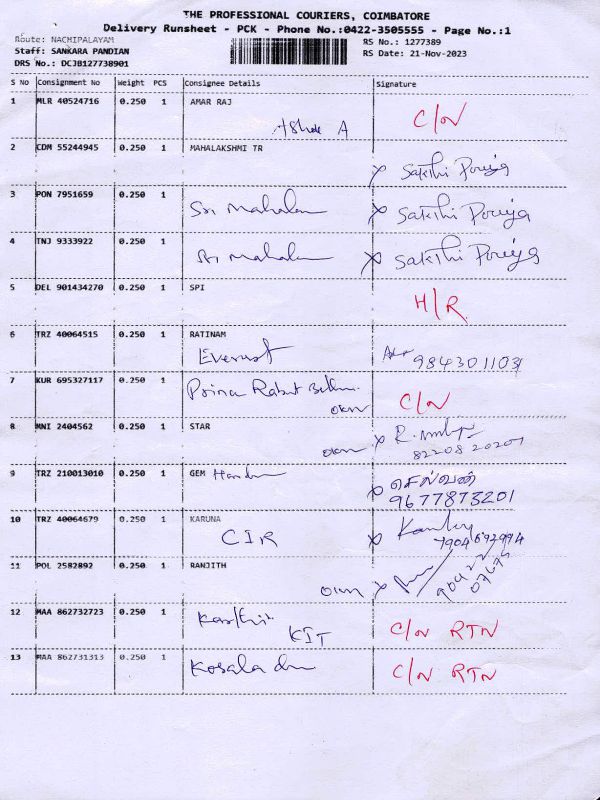 THE PROFESSIONAL COURIERS, COIMBATORE
Delivery Runsheet - PCK - Phone No.:0422-3505555 - Page No.:1
Route: NACHIPALAYAM
RS No.: 1277389
Staff: SANKARA PANDIAN
RS Date: 21-Nov-2023
DRS No.: DCJB127738901
S No Consignment No Weight PCS Consignee Details Signature
1 MLR 40524716 0.250 1 AMAR RAJ
A C/N
2 CDM 55244945 0.250 1 MAHALAKSHMI TR
x Sakthi Poriya
3 PON 7951659 0.250 1
Sri Mahalan x Sakthi Poriya
4 TNJ 9333922 0.250 1
Sri Mahalan x Sakthi Poriya
5 DEL 901434270 0.250 1 SPI
H/R
6 TRZ 40064515 0.250 1 RATINAM
Everest 9843011031
7 KUR 695327117 0.250 1 Prina
C/N
8 MNI 2404562 0.250 1 STAR
x R.
82208 20207
9 TRZ 210013010 0.250 1 GEM
x செல்வன்
9677873201
10 TRZ 40064679 0.250 1 KARUNA
CIR x
7904692994
11 POL 2582892 0.250 1 RANJITH
x
12 MAA 862732723 0.250 1
KIT C/N RTN
13 MAA 862731313 0.250 1
Kosala C/N RTN